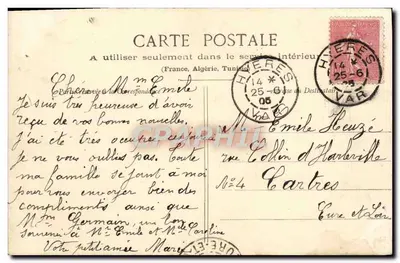 CARTE POSTALE
A utiliser seulement dans le service intérieur
(France, Algérie, Tunisie)
HYÈRES
14 *
25-6
05
VAR
HYÈRES
14 *
25-6
05
VAR
Chère Mme Emile
Je suis très heureuse d'avoir
reçue de vos bonnes nouvelles,
j'ai été très occupée
je ne vous oublies pas. Toute
ma famille se joint à moi
pour vous envoyer bien des
compliments ainsi que
Mme Germain, un bon
souvenir à Mr Emile et Me Caroline
Votre petite amie Marie
Mr Emile Heuzé
rue Collin d'Harleville
No 4 Cartres
Eure et Loir